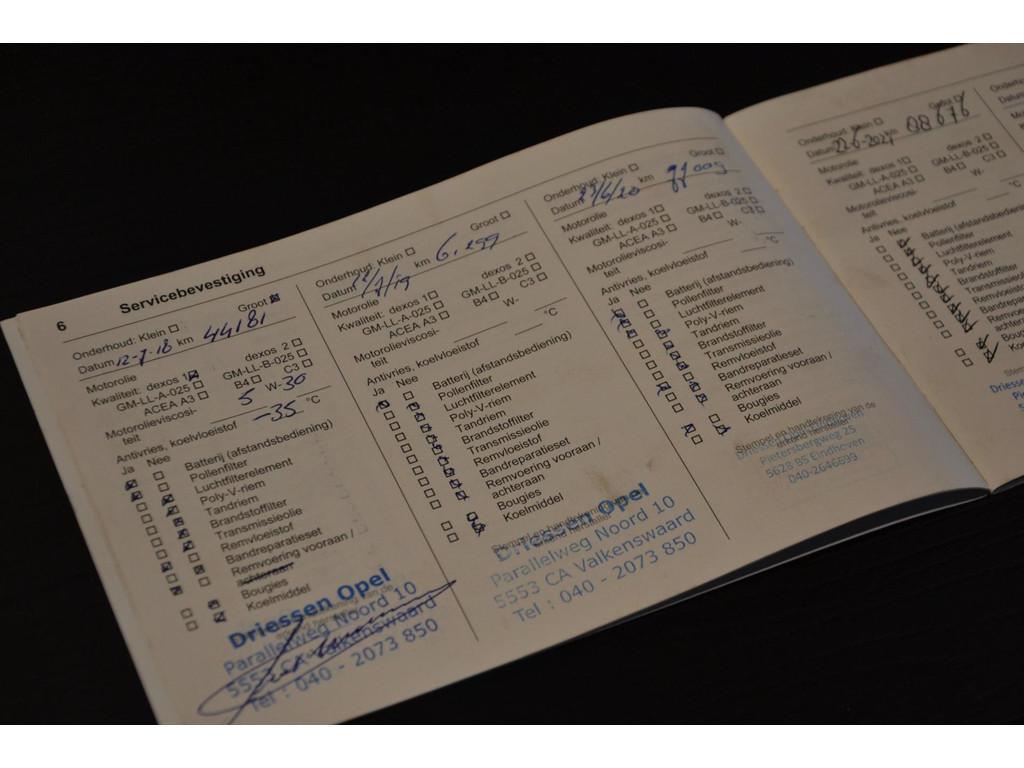 6
Servicebevestiging
Onderhoud: Klein Groot
Datum 12-7-18 km 44181
Motorolie
Kwaliteit: dexos 1 dexos 2
GM-LL-A-025 GM-LL-B-025
ACEA A3 B4 C3
Motorolieviscosi-
teit 5 W- 30
Antivries, koelvloeistof -35 °C
Ja Nee
Batterij (afstandsbediening)
Pollenfilter
Luchtfilterelement
Poly-V-riem
Tandriem
Brandstoffilter
Transmissieolie
Remvloeistof
Bandreparatieset
Remvoering vooraan /
achteraan
Bougies
Koelmiddel
Driessen Opel
Parallelweg Noord 10
5553 CA Valkenswaard
Tel : 040 - 2073 850
Onderhoud: Klein Groot
Datum km
Motorolie
Kwaliteit: dexos 1 dexos 2
GM-LL-A-025 GM-LL-B-025
ACEA A3 B4 C3
Motorolieviscosi-
teit W-
Antivries, koelvloeistof °C
Ja Nee
Batterij (afstandsbediening)
Pollenfilter
Luchtfilterelement
Poly-V-riem
Tandriem
Brandstoffilter
Transmissieolie
Remvloeistof
Bandreparatieset
Remvoering vooraan /
achteraan
Bougies
Koelmiddel
Driessen Opel
Parallelweg Noord 10
5553 CA Valkenswaard
Tel : 040 - 2073 850
Onderhoud: Klein Groot
Datum km
Motorolie
Kwaliteit: dexos 1 dexos 2
GM-LL-A-025 GM-LL-B-025
ACEA A3 B4 C3
Motorolieviscosi-
teit W-
Antivries, koelvloeistof °C
Ja Nee
Batterij (afstandsbediening)
Pollenfilter
Luchtfilterelement
Poly-V-riem
Tandriem
Brandstoffilter
Transmissieolie
Remvloeistof
Bandreparatieset
Remvoering vooraan /
achteraan
Bougies
Koelmiddel
Stempel en handtekening van de
Pietersbergweg 25
5628 BS Eindhoven
040-2646699
Onderhoud: Klein Groot
Datum km 08676
Motorolie
Kwaliteit: dexos 1 dexos 2
GM-LL-A-025 GM-LL-B-025
ACEA A3 B4 C3
Motorolieviscosi-
teit W-
Antivries, koelvloeistof °C
Ja Nee
Batterij (afstandsbediening)
Pollenfilter
Luchtfilterelement
Poly-V-riem
Tandriem